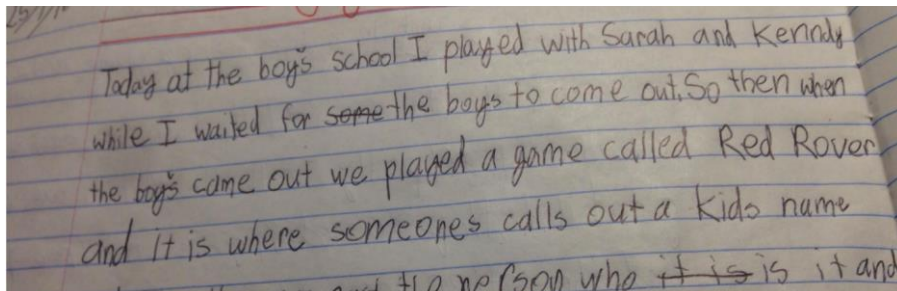 Today at the boy's school I played with Sarah and Kenndy
while I waited for some the boys to come out. So then when
the boy's came out we played a game called Red Rover
and it is where someones calls out a kids name
the person who it is is it and